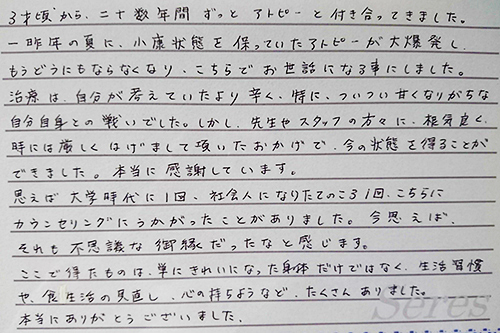 3才頃から、二十数年間ずっとアトピーと付き合ってきました。
一昨年の夏に、小康状態を保っていたアトピーが大爆発し、
もうどうにもならなくなり、こちらでお世話になる事にしました。
治療は、自分が考えていたより辛く、特に、ついつい甘くなりがちな
自分自身との戦いでした。しかし、先生やスタッフの方々に、根気良く、
時には厳しくはげまして項いたおかげで、今の状態を得ることが
できました。本当に感謝しています。
思えば大学時代に1回、社会人になりたてのころ1回、こちらに
カウンセリングにうかがったことがありました。今思えば、
それも不思議な御縁だったなと感じます。
ここで得たものは、単にきれいになった身体だけではなく、生活習慣
や、食生活の見直し、心の持ちようなど、たくさんありました。
本当にありがとうございました。
Seres